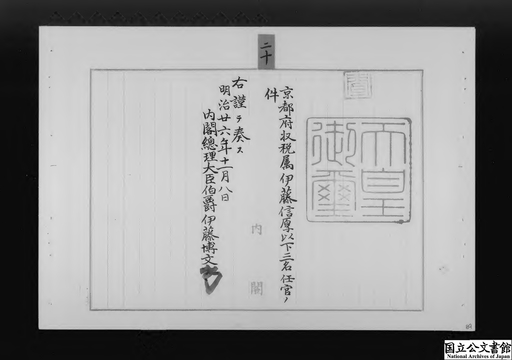 二十
天皇
御璽
京都府収税属伊藤信厚以下三名任官ノ
件
右謹テ奏ス
明治廿六年十一月八日
内閣總理大臣伯爵伊藤博文
内閣
国立公文書館
National Archives of Japan